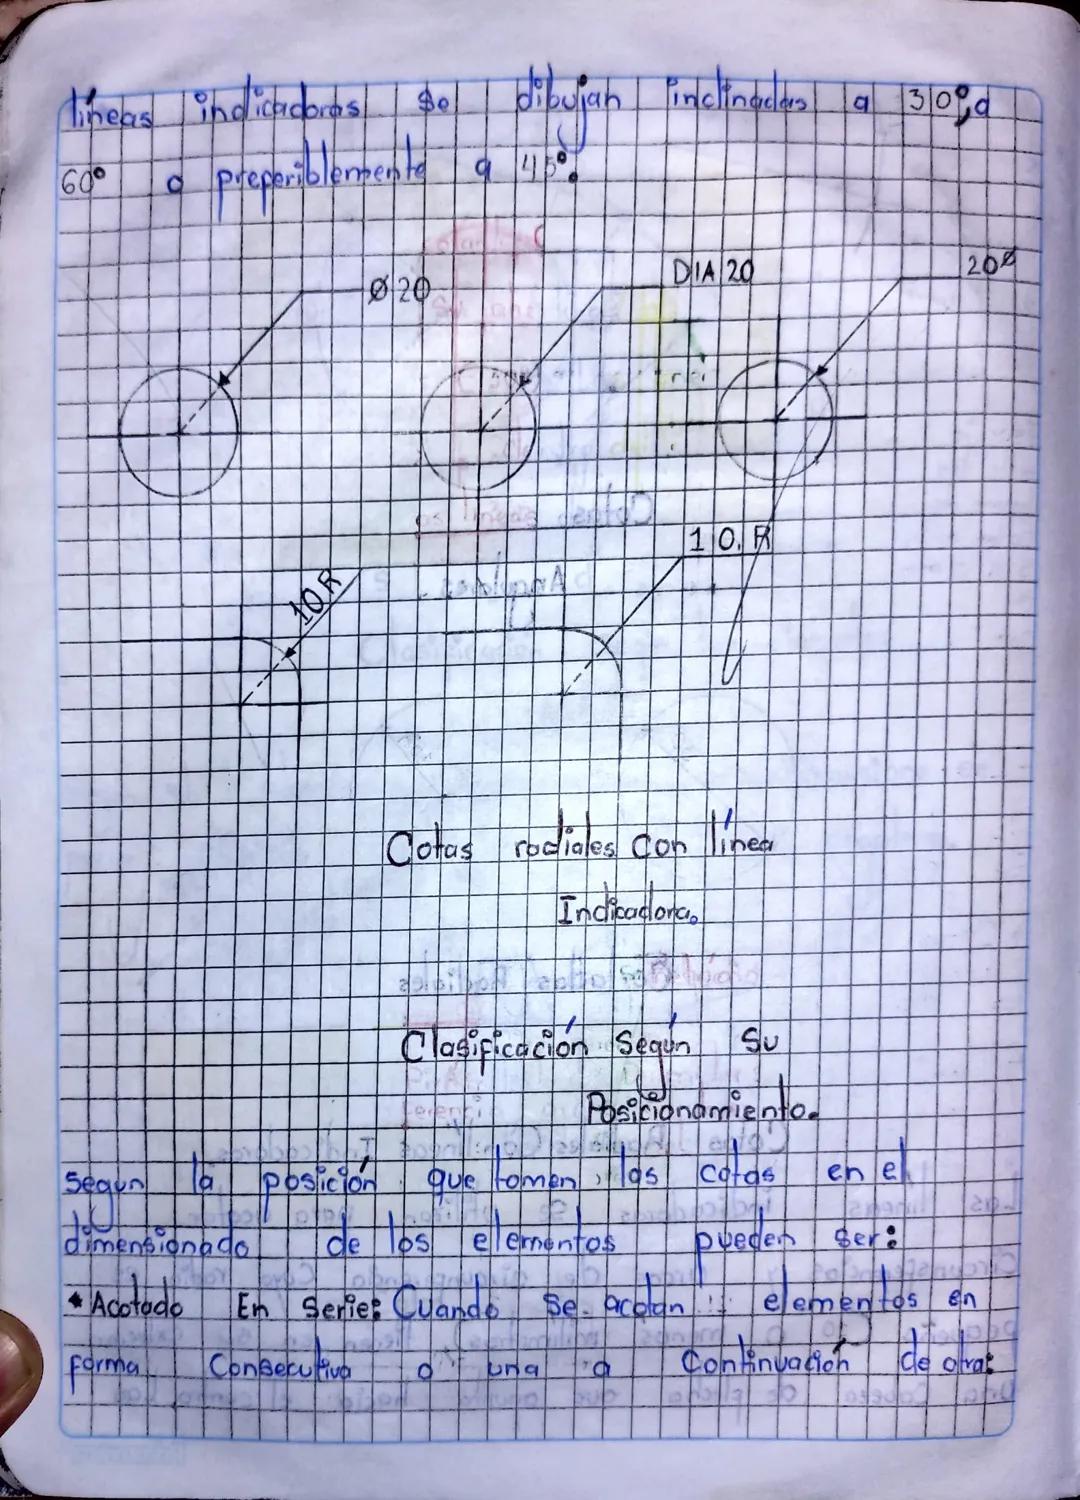 líneas indicadoras se dibujan inclinadas a 30°,a
60° o preperiblemente a 45°.
Ø 20
DIA 20
20Ø
10R
10.R
Cotas radiales Con línea
Indicadora.
Clasificación Según Su
Posicionamiento.
Segun la posición que tomen, las cotas en el
dimensionado de los elementos pueden ser:
* Acotado En Serie: Cuando se acotan elementos en
forma Consecutiva o una a Continuación de otra: